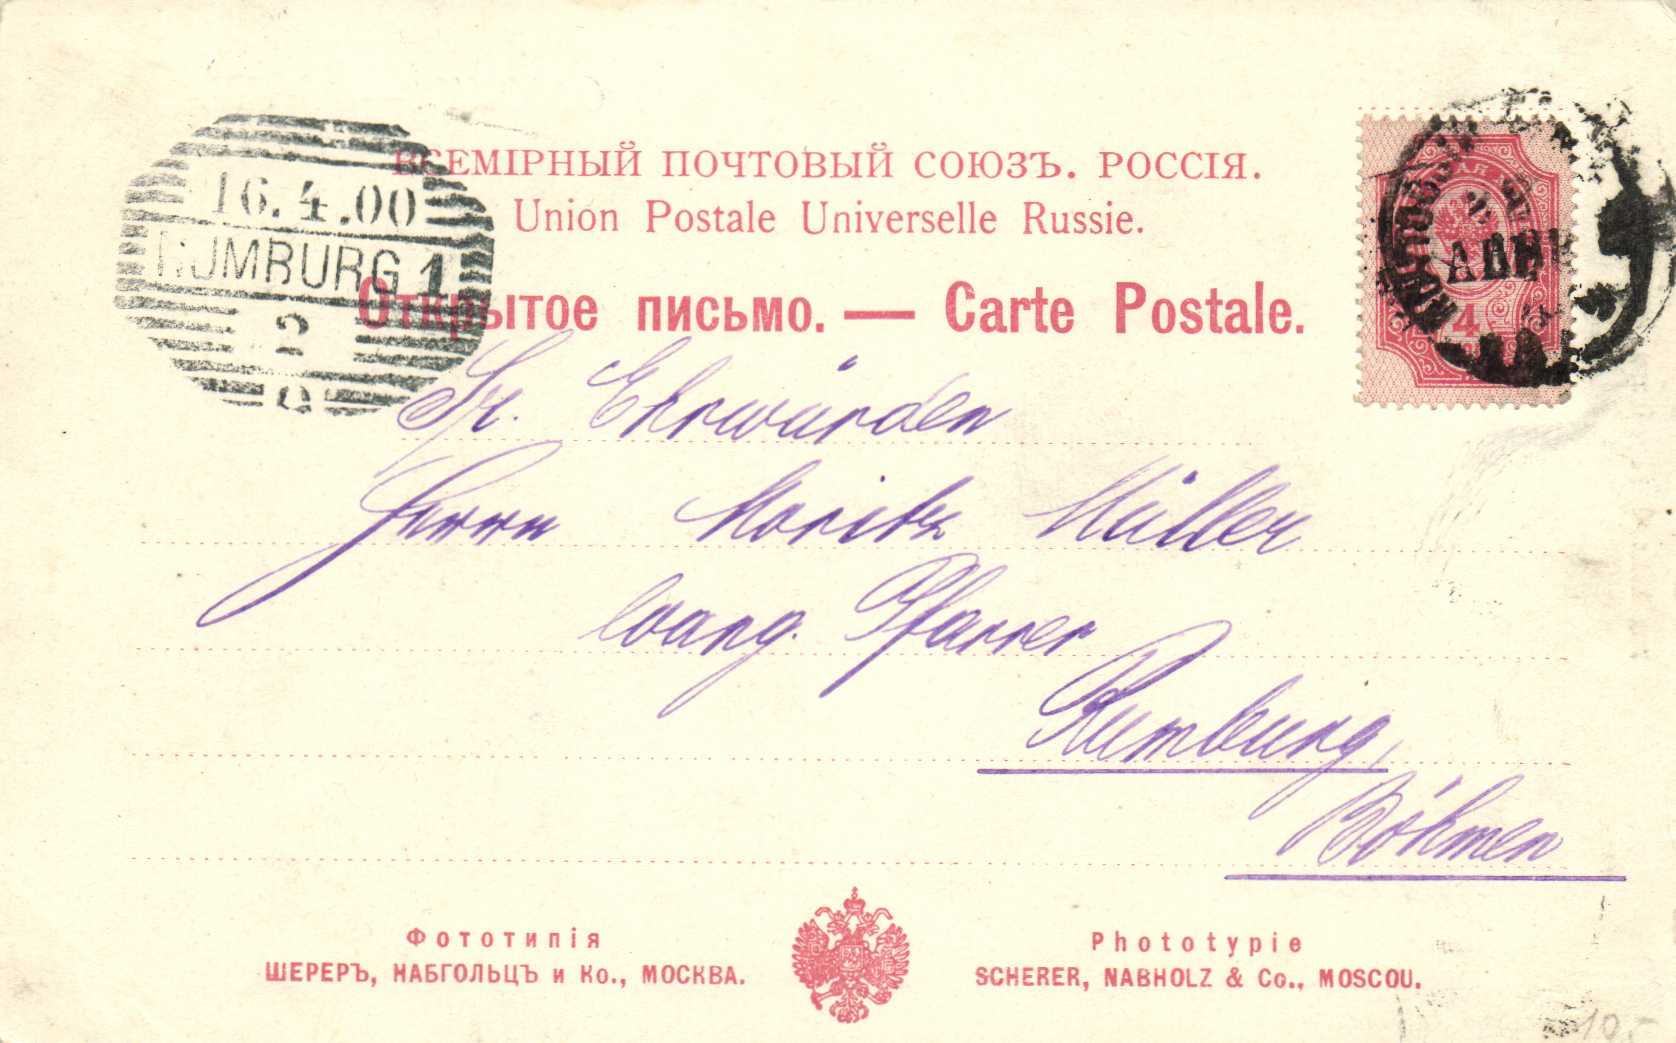 16.4.00
RUMBURG 1
2
ВСЕМІРНЫЙ ПОЧТОВЫЙ СОЮЗЪ. РОССІЯ.
Union Postale Universelle Russie.
Открытое письмо. — Carte Postale.
4
Sr. Ehrwürden
Herrn Moritz Müller
evang. Pfarrer
Rumburg,
Böhmen
Фототипія
ШЕРЕРЪ, НАБГОЛЬЦЪ и Ко., МОСКВА.
Phototypie
SCHERER, NABHOLZ & Co., MOSCOU.
10.-